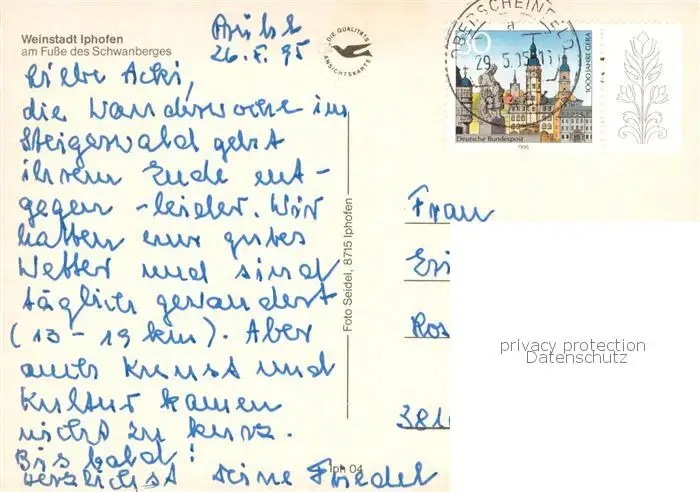 Weinstadt Iphofen
am Fuße des Schwanberges
26.5.95
DIE QUALITÄTS
ANSICHTSKARTE
Liebe Acki,
die Wanderwoche im
Steigerwald geht
ihrem Ende ent-
gegen - leider. Wir
hatten nur gutes
Wetter und sind
täglich gewandert
(13 - 19 km). Aber
auch Kunst und
Kultur kamen
nicht zu kurz.
Bis bald!
Herzlichst Deine Friedel
Foto Seidel, 8715 Iphofen
Iph 04
OBERSCHEINFELD
29.5.95
80
1000 JAHRE GERA
Deutsche Bundespost
1995
Frau
Eri
Ros
381
privacy protection
Datenschutz